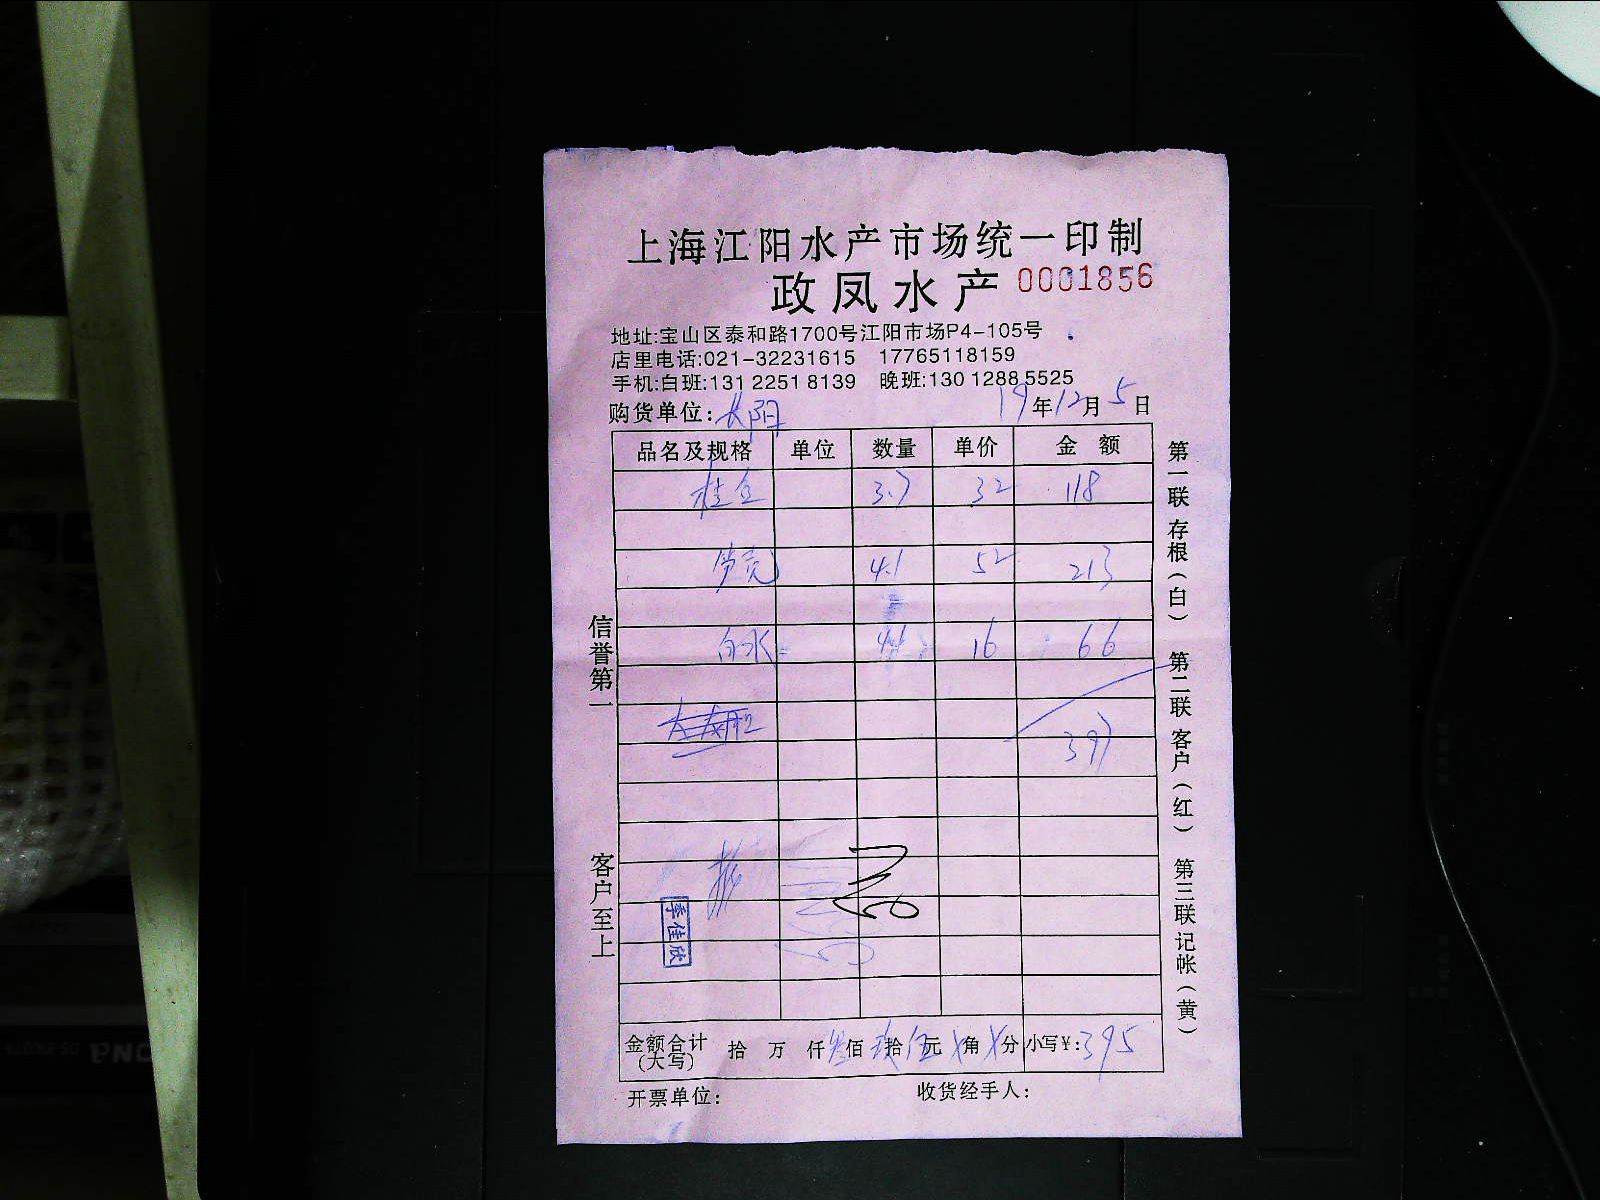 上海江阳水产市场统一印制
政凤水产 0001856
地址:宝山区泰和路1700号江阳市场P4-105号
店里电话:021-32231615 17765118159
手机:白班:131 2251 8139 晚班:130 1288 5525
购货单位: 19年12月5日
品名及规格 单位 数量 单价 金额
桂 3.7 32 118
4.1 52 213
白水 4.1 16 66
397
季佳欣
金额合计(大写) 拾 万 仟叁佰玖拾伍元X角X分 小写¥:395
开票单位: 收货经手人:
信誉第一
客户至上
第一联存根(白)
第二联客户(红)
第三联记帐(黄)